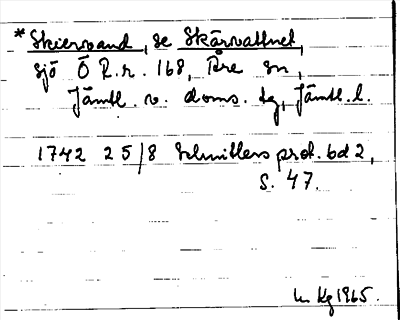 * Skiervand, se Skärvattnet,
sjö Ö R.r. 168, Åre sn,
Jämtl. v. doms. tg, Jämtl. l.
1742 25/8 Schnitlers prot. bd 2,
S. 47.
Kg 1965.